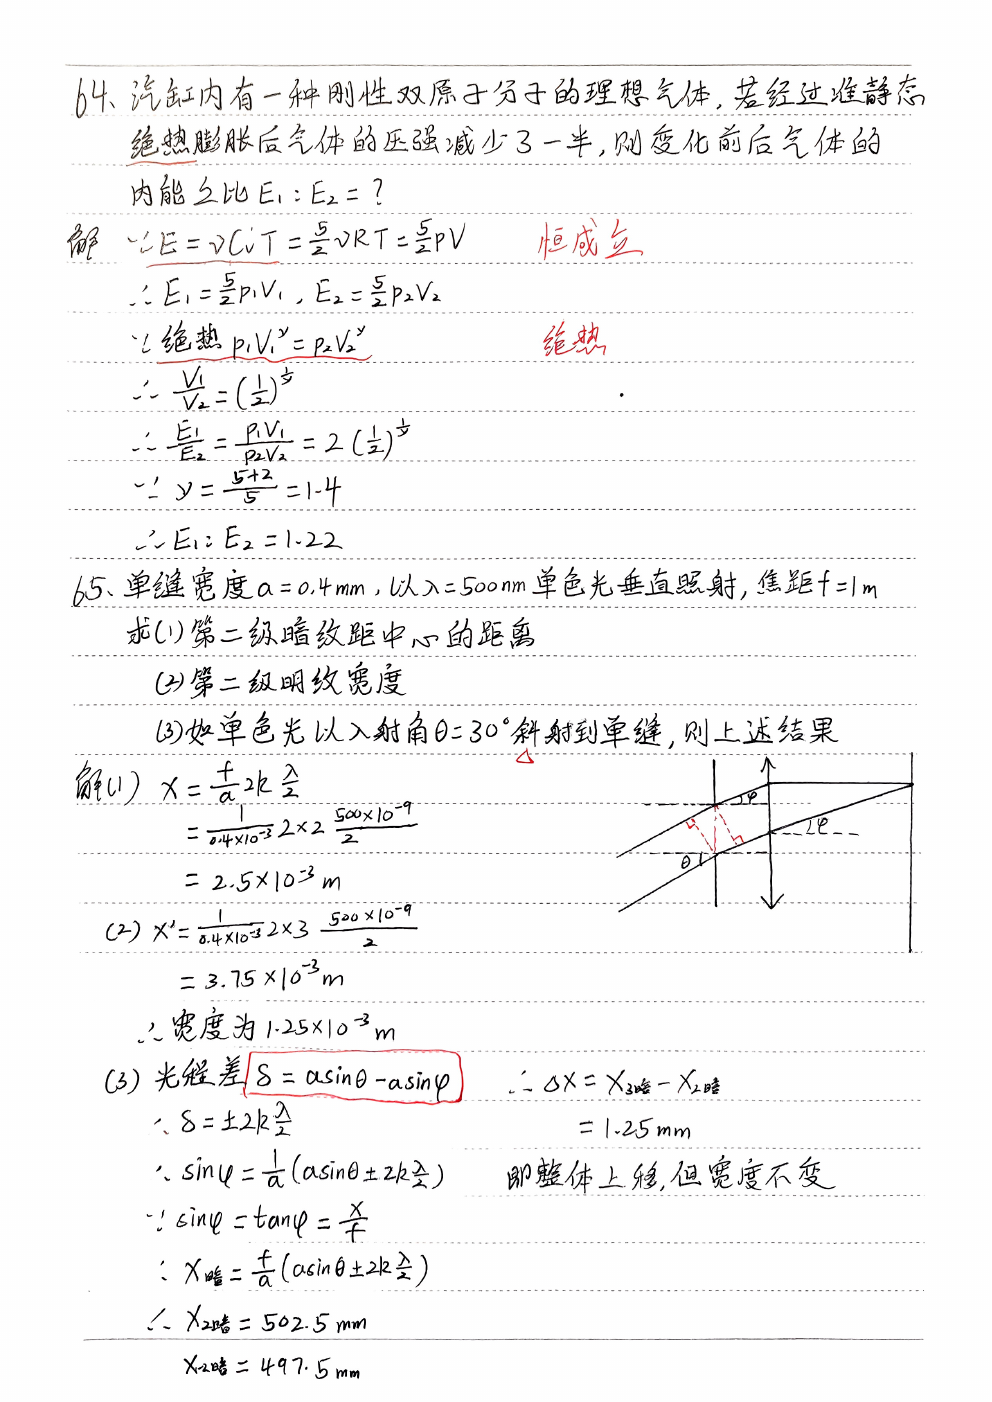 64、汽缸内有一种刚性双原子分子的理想气体，若经过准静态
绝热膨胀后气体的压强减少了一半，则变化前后气体的
内能之比 E₁：E₂ = ?
解 ∵ E = νCᵥT = 5/2 νRT = 5/2 pV 恒成立
∴ E₁ = 5/2 p₁V₁ , E₂ = 5/2 p₂V₂
∵ 绝热 p₁V₁^γ = p₂V₂^γ 绝热
∴ V₁/V₂ = (1/2)^(1/γ)
∴ E₁/E₂ = p₁V₁/p₂V₂ = 2(1/2)^(1/γ)
∵ γ = (5+2)/5 = 1.4
∴ E₁：E₂ = 1.22
65、单缝宽度 a = 0.4mm，以 λ = 500nm 单色光垂直照射，焦距 f = 1m
求(1)第二级暗纹距中心的距离
(2)第二级明纹宽度
(3)如单色光以入射角θ = 30°斜射到单缝，则上述结果
解(1) x = f/a 2k λ/2
= 1/(0.4×10⁻³) 2×2 (500×10⁻⁹)/2
= 2.5×10⁻³ m
(2) x' = 1/(0.4×10⁻³) 2×3 (500×10⁻⁹)/2
= 3.75×10⁻³ m
∴ 宽度为 1.25×10⁻³ m
φ
φ
θ
(3) 光程差 δ = asinθ - asinφ
∵ δ = ±2k λ/2
∴ sinφ = 1/a (asinθ ± 2k λ/2)
∵ sinφ = tanφ = x/f
∴ x暗 = f/a (asinθ ± 2k λ/2)
∴ x₂暗 = 502.5 mm
x₋₂暗 = 497.5 mm
∴ Δx = x₃暗 - x₂暗
= 1.25 mm
即整体上移，但宽度不变